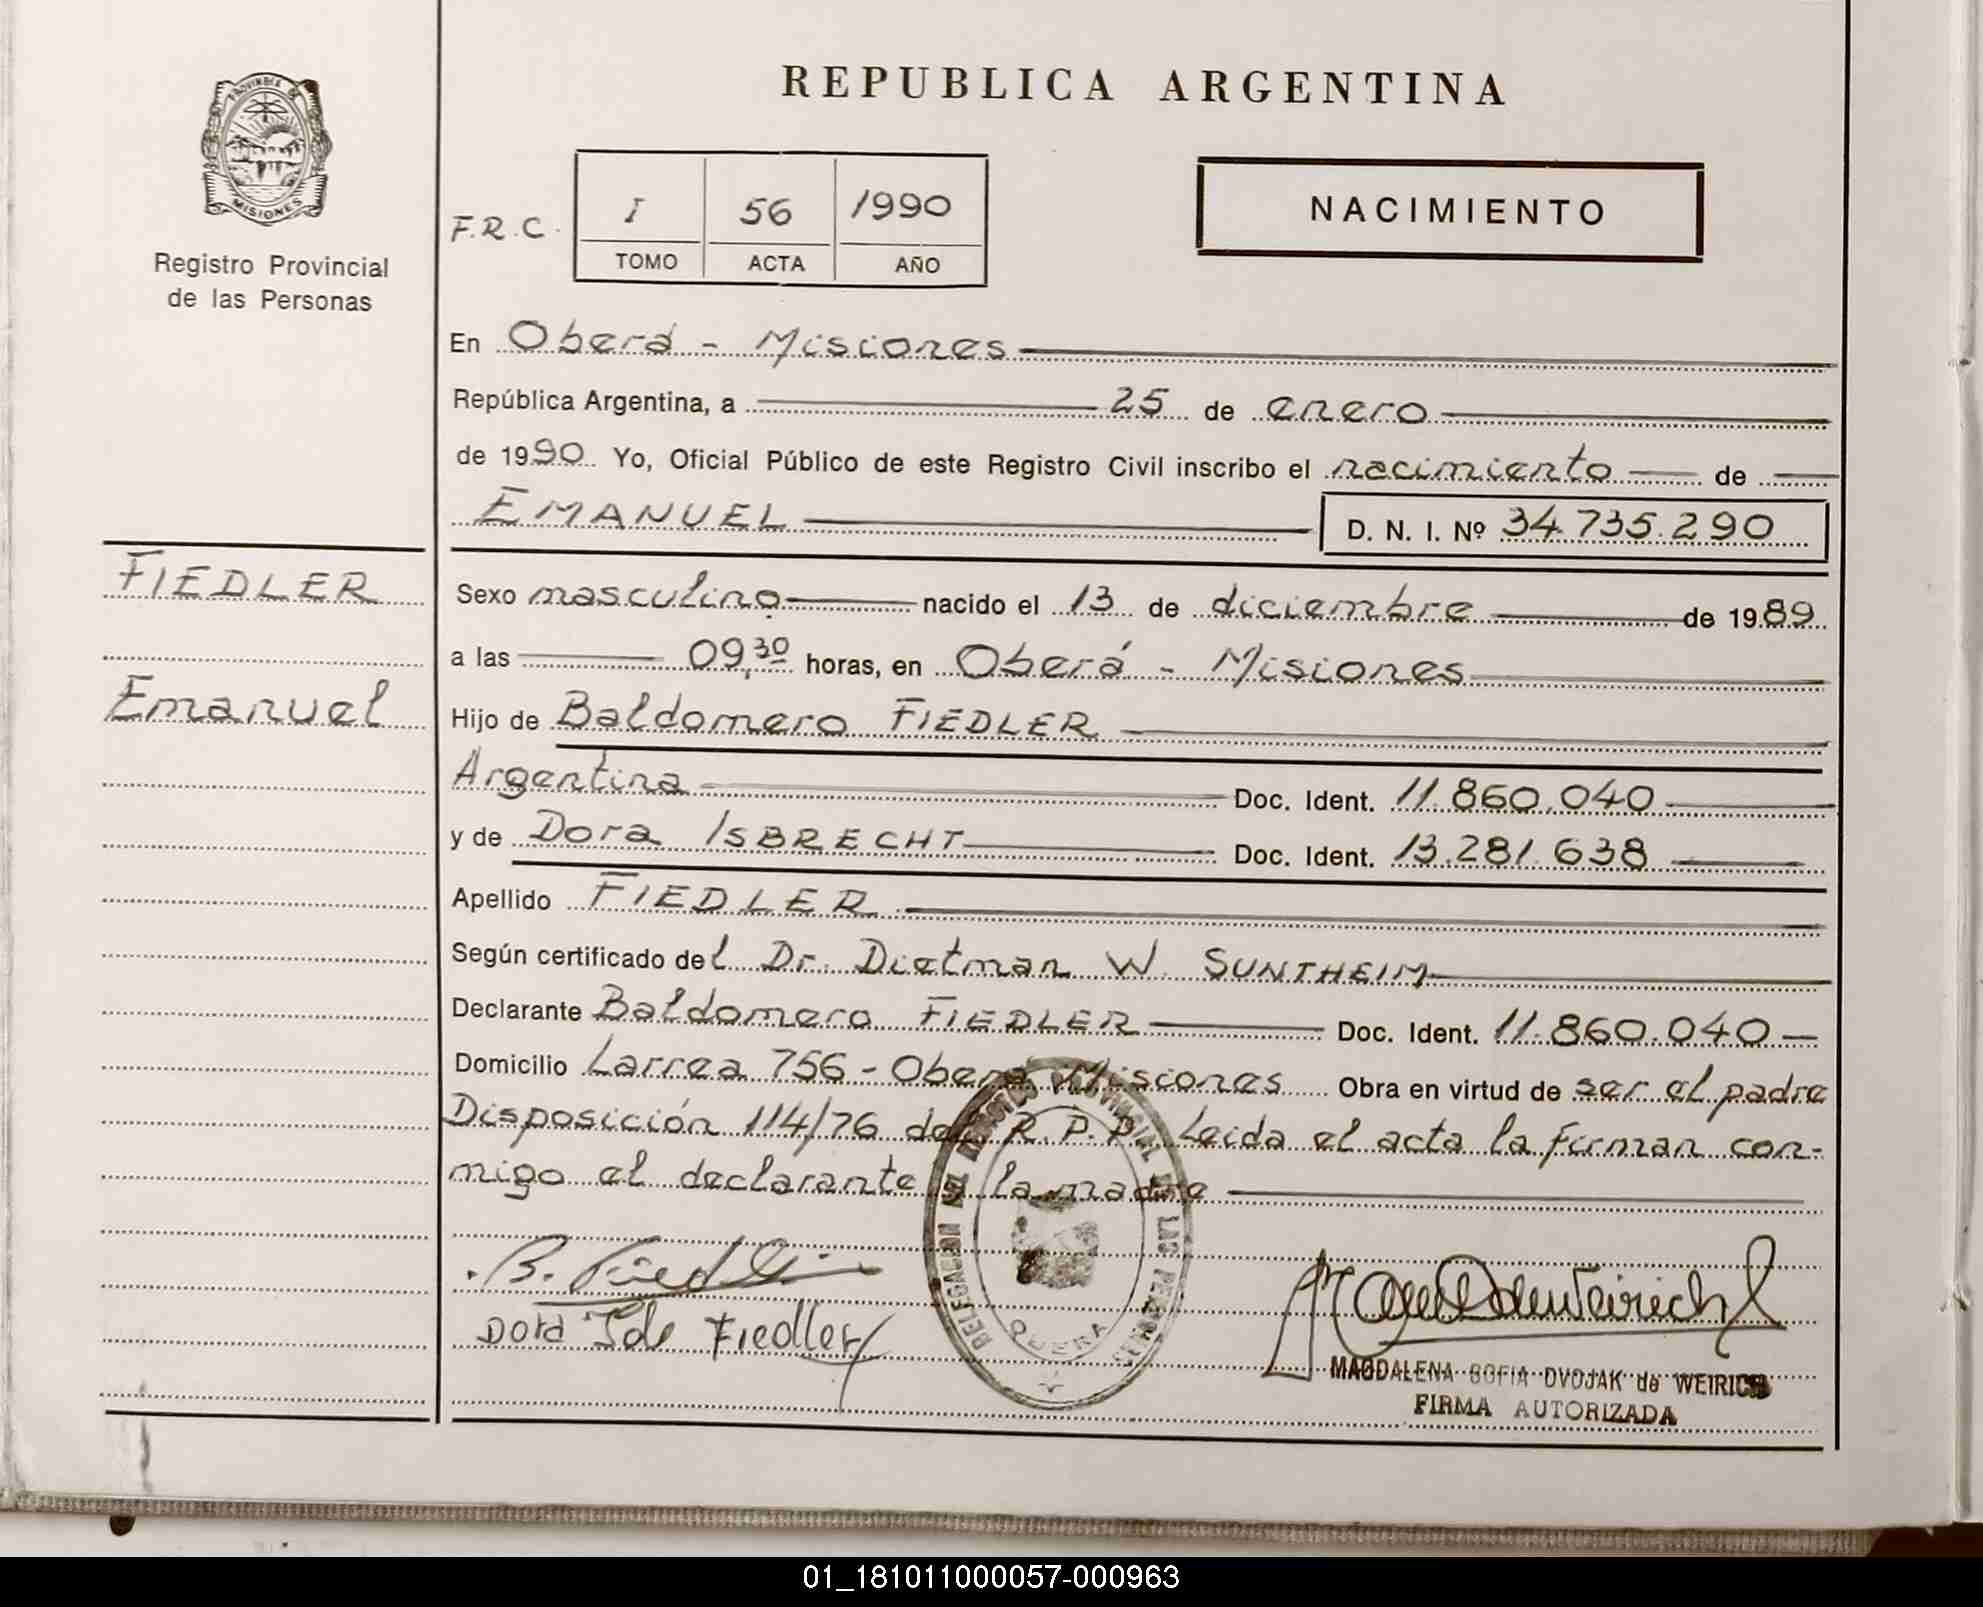 REPUBLICA ARGENTINA
PROVINCIA DE
MISIONES
Registro Provincial
de las Personas
NACIMIENTO
F.R.C. I 56 1990
TOMO ACTA AÑO
En Oberá - Misiones
República Argentina, a 25 de enero
de 1990 Yo, Oficial Público de este Registro Civil inscribo el nacimiento de
EMANUEL D. N. I. Nº 34.735.290
FIEDLER
Emanuel
Sexo masculino nacido el 13 de diciembre de 1989
a las 09,30 horas, en Oberá - Misiones
Hijo de Baldomero FIEDLER
Argentina Doc. Ident. 11.860.040
y de Dora ISBRECHT Doc. Ident. 13.281.638
Apellido FIEDLER
Según certificado del Dr. Dietman W. SUNTHEIM
Declarante Baldomero FIEDLER Doc. Ident. 11.860.040
Domicilio Larrea 756 - Oberá Misiones Obra en virtud de ser el padre
Disposición 114/76 del R.P.P. Leida el acta la firman con-
migo el declarante y la madre
B. Fiedler
Dora Fiedler
DELEGACION DEL REGISTRO PROVINCIAL DE LAS PERSONAS
OBERA
MAGDALENA SOFIA DVOJAK de WEIRICH
FIRMA AUTORIZADA
01_181011000057-000963